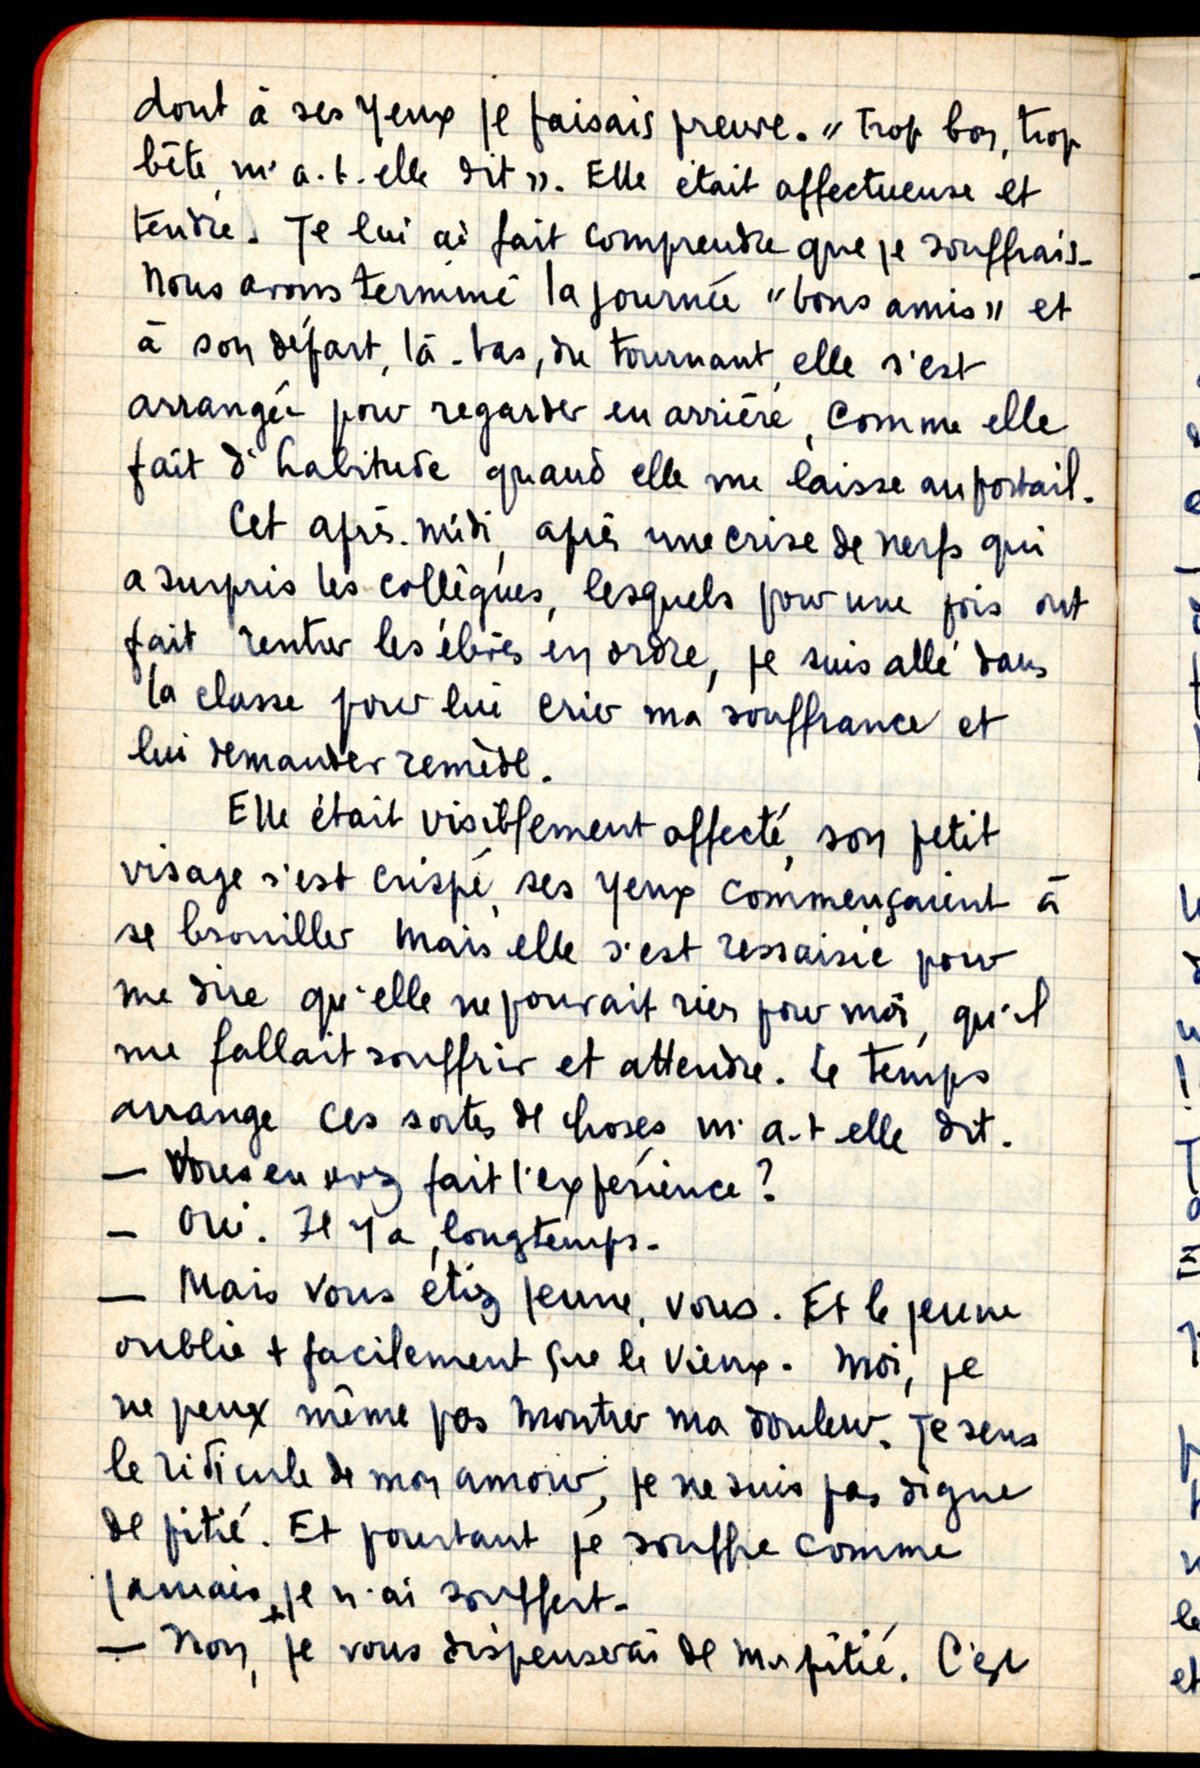 dont à ses yeux je faisais preuve. « Trop bon, trop
bête, m'a-t-elle dit ». Elle était affectueuse et
tendre. Je lui ai fait comprendre que je souffrais.
Nous avons terminé la journée "bons amis" et
à son départ, là-bas, du tournant, elle s'est
arrangée pour regarder en arrière, comme elle
fait d'habitude quand elle me laisse au portail.
Cet après-midi, après une crise de nerfs qui
a surpris les collègues, lesquels pour une fois ont
fait rentrer les élèves en ordre, je suis allé dans
la classe pour lui crier ma souffrance et
lui demander remède.
Elle était visiblement affecté, son petit
visage s'est crispé, ses yeux commençaient à
se brouiller mais elle s'est ressaisie pour
me dire qu'elle ne pouvait rien pour moi, qu'il
me fallait souffrir et attendre. Le temps
arrange ces sortes de choses m'a-t-elle dit.
— Vous en avez fait l'expérience ?
— Oui. Il y a longtemps.
— Mais vous étiez jeune, vous. Et le jeune
oublie + facilement que le vieux. Moi, je
ne peux même pas montrer ma douleur. Je sens
le ridicule de mon amour, je ne suis pas digne
de pitié. Et pourtant je souffre comme
jamais je n'ai souffert.
— Non, je vous dispenserai de ma pitié. C'est